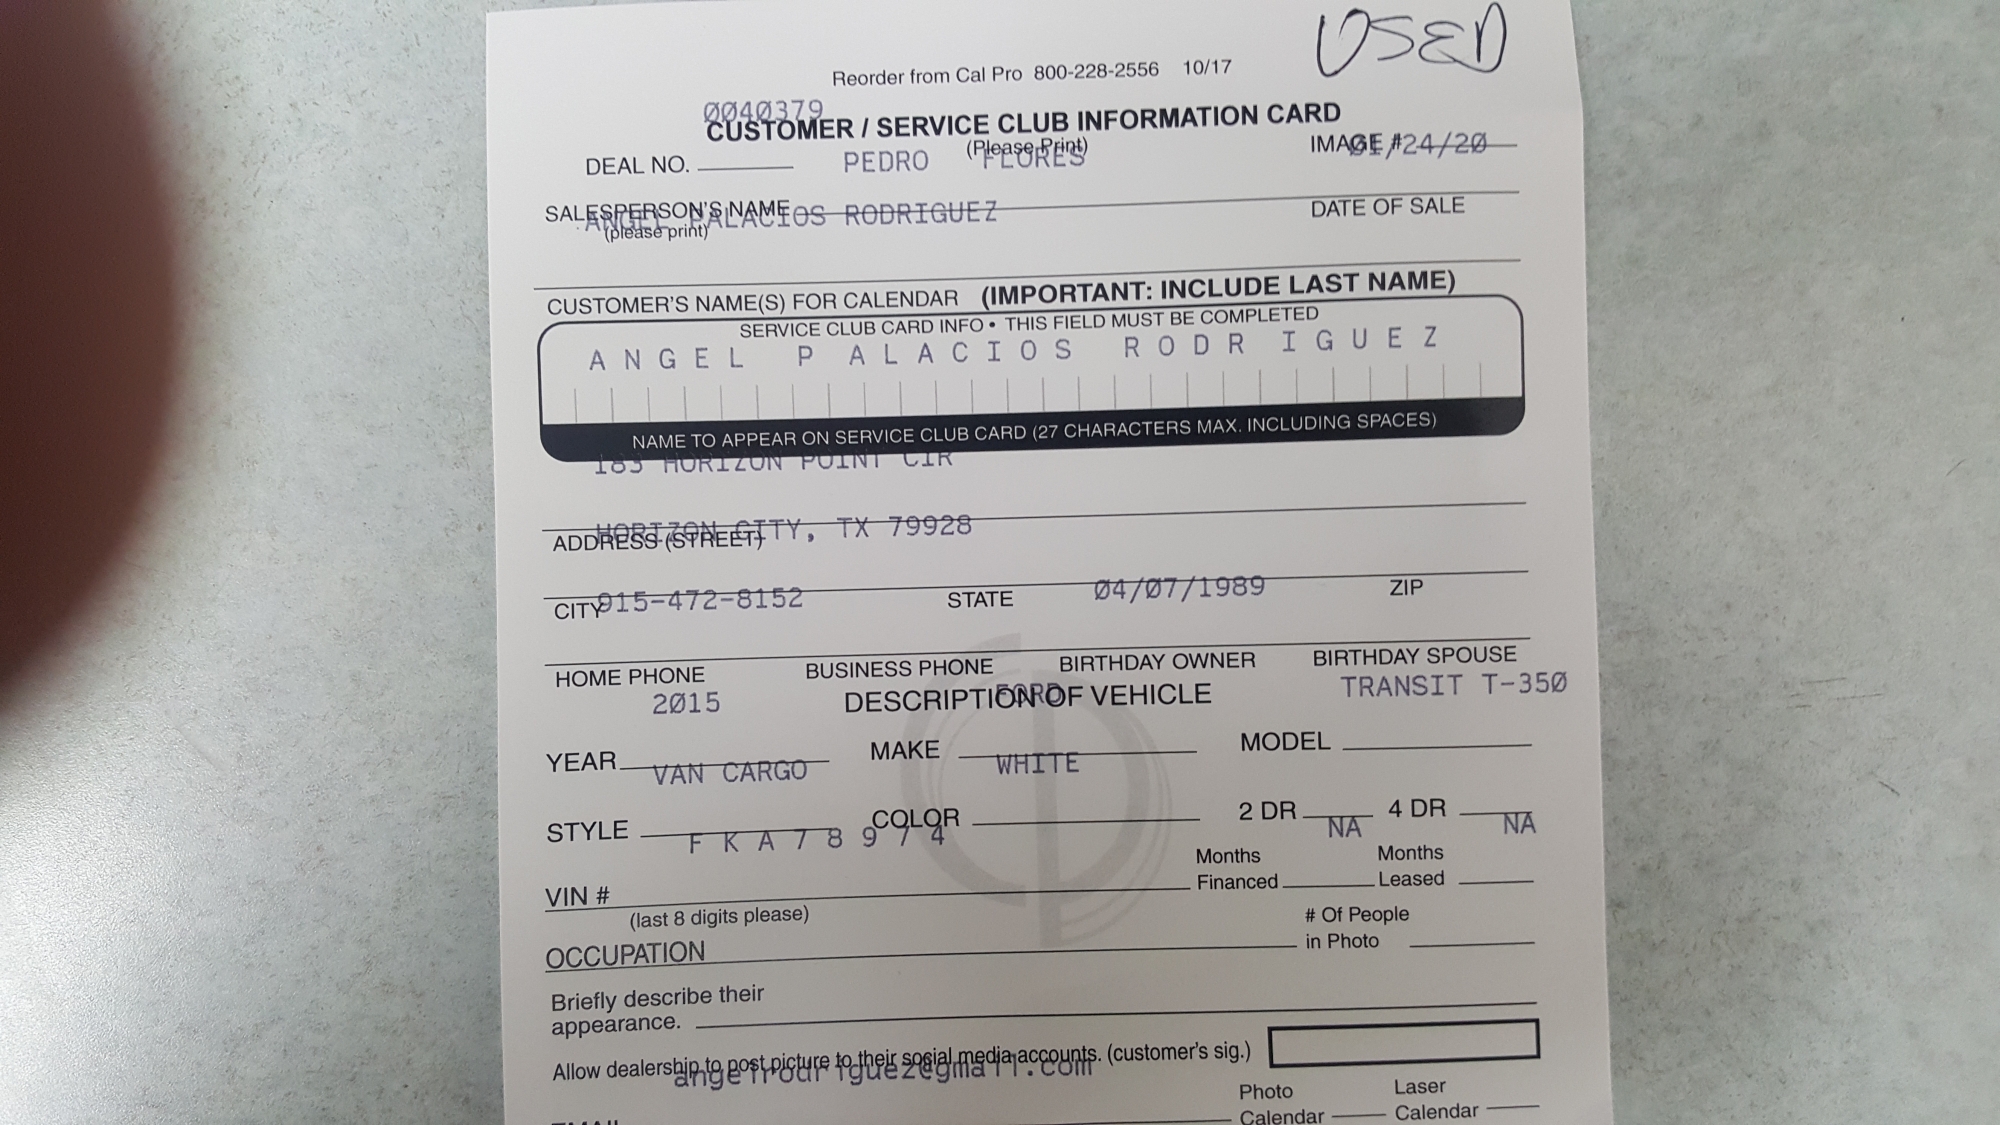 USED
Reorder from Cal Pro 800-228-2556 10/17
0040379
CUSTOMER / SERVICE CLUB INFORMATION CARD
(Please Print)
DEAL NO. PEDRO FLORES IMAGE # 01/24/20
SALESPERSON'S NAME DATE OF SALE
ANGEL PALACIOS RODRIGUEZ
(please print)
CUSTOMER'S NAME(S) FOR CALENDAR (IMPORTANT: INCLUDE LAST NAME)
SERVICE CLUB CARD INFO • THIS FIELD MUST BE COMPLETED
ANGEL PALACIOS RODRIGUEZ
NAME TO APPEAR ON SERVICE CLUB CARD (27 CHARACTERS MAX. INCLUDING SPACES)
183 HORIZON POINT CIR
HORIZON CITY, TX 79928
ADDRESS (STREET)
915-472-8152 04/07/1989
CITY STATE ZIP
HOME PHONE BUSINESS PHONE BIRTHDAY OWNER BIRTHDAY SPOUSE
2015 FORD TRANSIT T-350
DESCRIPTION OF VEHICLE
YEAR MAKE MODEL
VAN CARGO WHITE
STYLE COLOR 2 DR 4 DR
FKA78974 NA NA
VIN # Months Financed Months Leased
(last 8 digits please)
OCCUPATION # Of People in Photo
Briefly describe their
appearance.
Allow dealership to post picture to their social media accounts. (customer's sig.)
angelrodriguez@gmail.com
Photo Calendar Laser Calendar